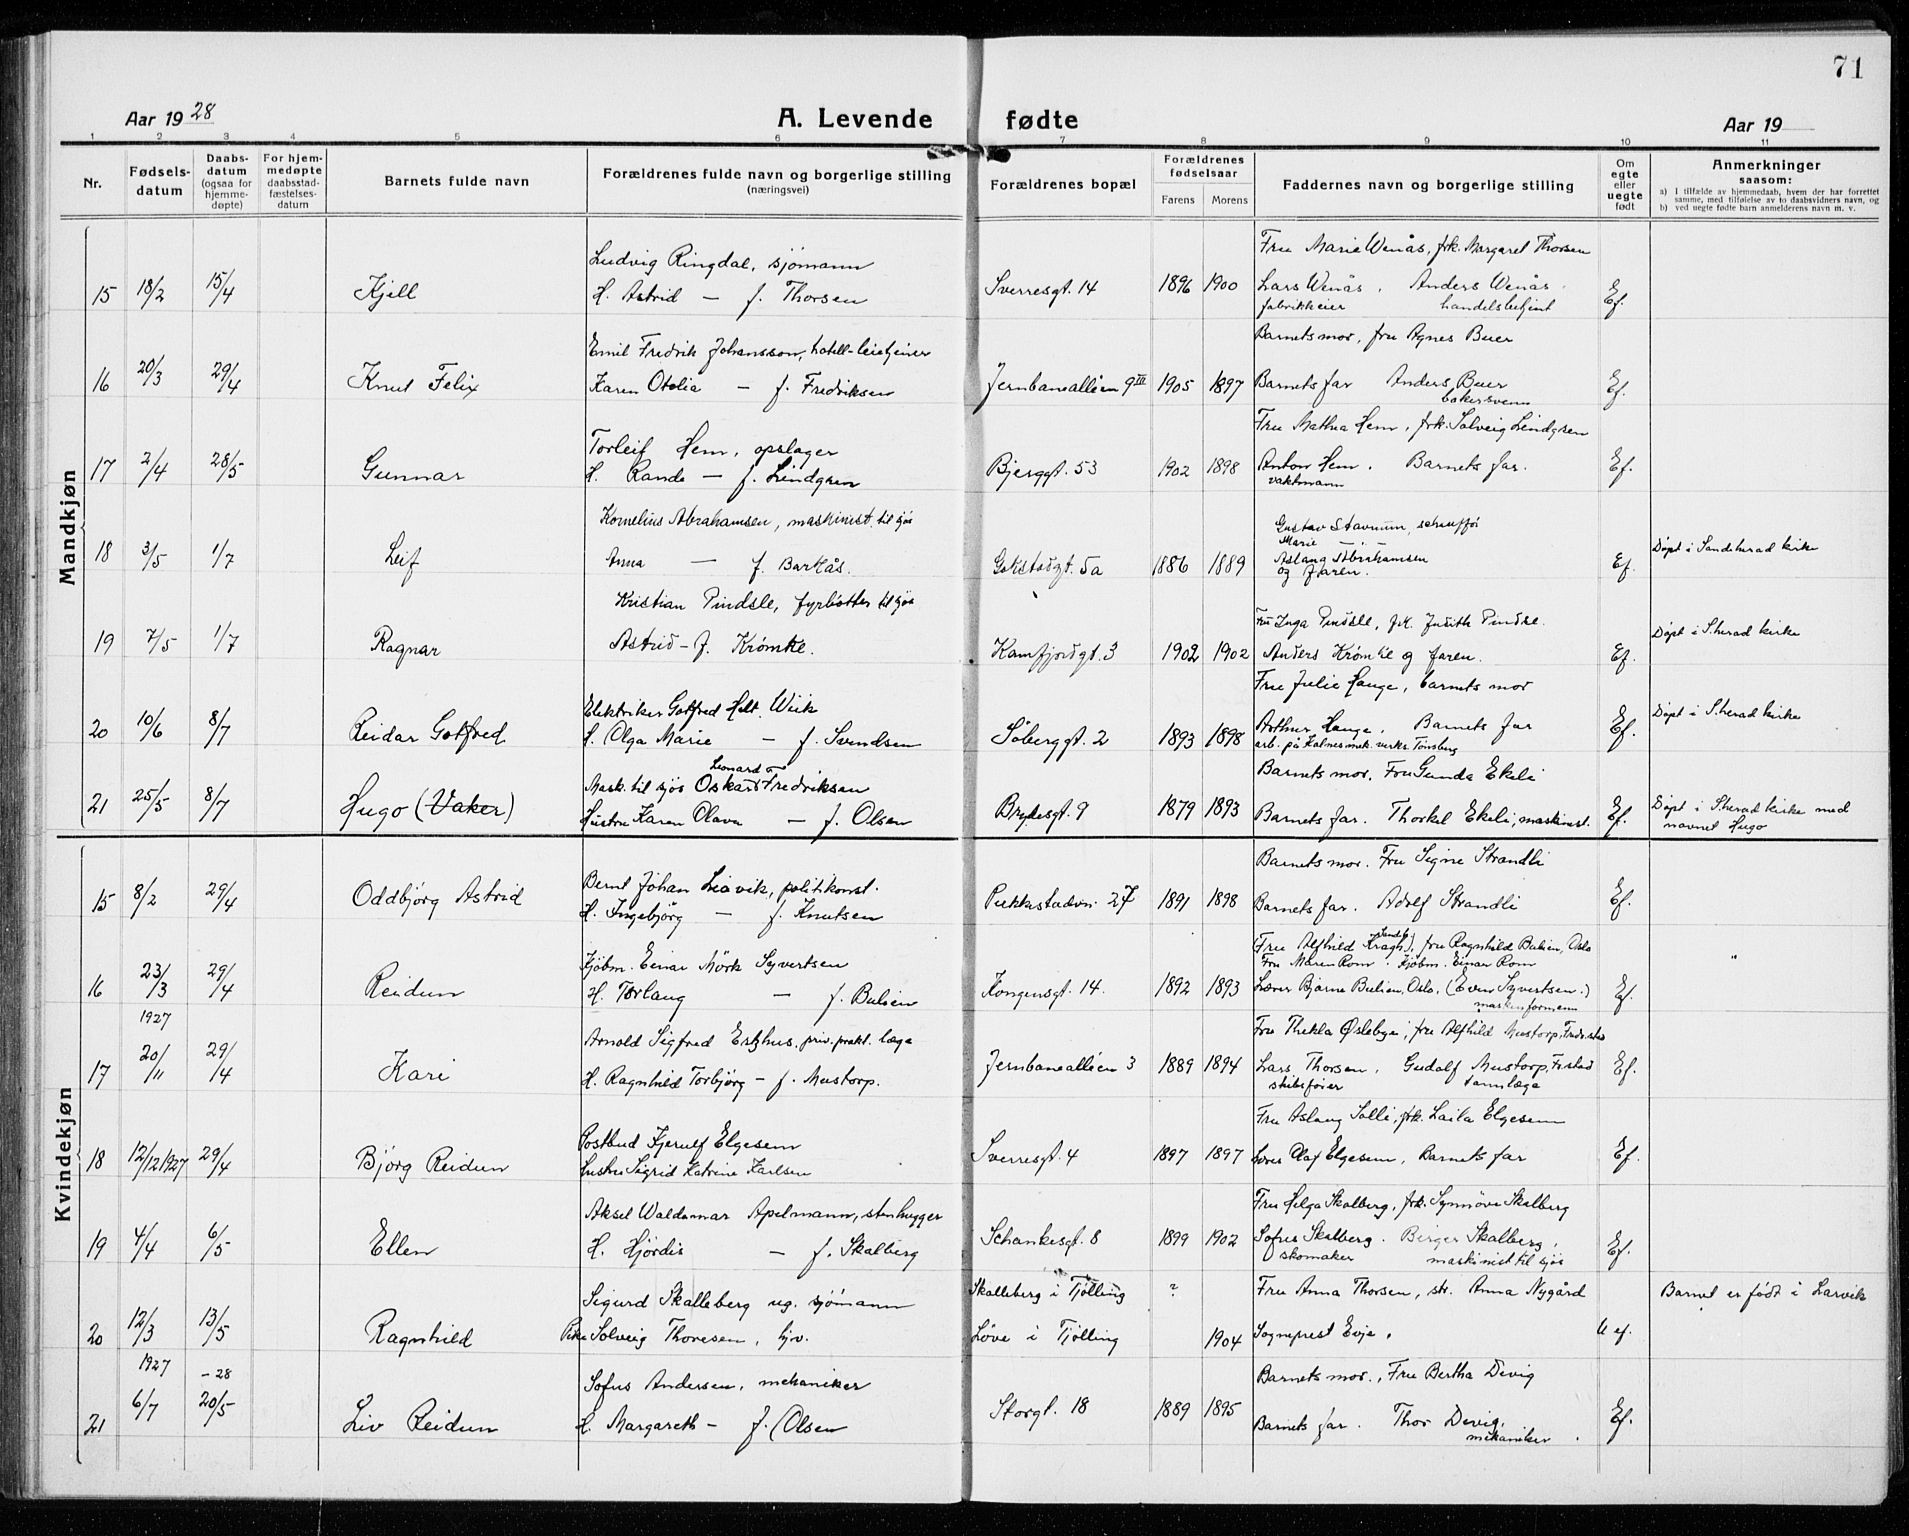 71
Aar 1928 A. Levende fødte Aar 19
1 2 3 4 5 6 7 8 9 10 11
Nr. | Fødselsdatum | Daabsdatum (ogsaa for hjemmedøpte) | For hjemmedøpte daabsstadfæstelsesdatum | Barnets fulde navn | Forældrenes fulde navn og borgerlige stilling (næringsvei) | Forældrenes bopæl | Forældrenes fødselsaar Farens Morens | Faddernes navn og borgerlige stilling | Om egte eller uegte født | Anmerkninger saasom:
a) I tilfælde av hjemmedaab, hvem der har forrettet samme, med tilføielse av to daabsvidners navn, og
b) ved uegte fødte barn anmelderens navn m. v.
Mandkjøn
Ludvig Ringdal, sjömann Fru Marie Wenås, frk. Margaret Thorsen
15 18/2 15/4 Kjell H. Astrid — f. Thorsen Sverresgt. 14 1896 1900 Lars Wenås. Anders Wenås. Ef.
fabrikkeier handelsbetjent
Emil Fredrik Johansson, hotell- Barnets mor, fru Agnes Buer
16 20/3 29/4 Knut Felix Karen Otelia — f. Fredriksen Jernbanealléen 9 III 1905 1897 Barnets far Anders Buer Ef.
bakersvenn
Torleif Hem, opslager Fru Mathea Hem, frk. Solveig Lindgren
17 2/4 28/5 Gunnar H. Randi — f. Lindgren Bjerggt. 53 1902 1898 Anton Hem. Barnets far. Ef.
vaktmann
Kornelius Abrahamsen, maskinist til sjös Gustav Stavnum, schauffør
Marie — " —
18 3/5 1/7 Leif Anna — f. Barkås. Gokstadgt. 5a 1886 1889 Aslaug Abrahamsen Ef. Døpt i Sandeherad kirke
og faren.
Kristian Pindsle, fyrbøter til sjös Fru Inga Pindsle, frk. Judith Pindsle.
19 7/5 1/7 Ragnar Astrid — f. Krømke. Kamfjordgt. 3 1902 1902 Anders Krømke og faren. Ef. Døpt i S.herad kirke
Elektriker Gotfred Helt. Wiik Fru Julie Hauge, barnets mor
20 10/6 8/7 Reidar Gotfred H. Olga Marie — f. Svendsen Söberggt. 2 1893 1898 Arthur Hauge. Barnets far Ef. Døpt i S.herad kirke
arb. på Kalnes mek. verks. Tönsberg
Leonard
Mask. til sjös Oskar Fredriksen Barnets mor. Fru Gunda Ekeli
21 25/5 8/7 Hugo (Vaker) Hustru Karen Olava — f. Olsen Brydesgt. 9 1879 1893 Barnets far. Thorkel Ekeli, maskinist. Ef. Døpt i S.herad kirke med
navnet Hugo
Kvindekjøn
Bernt Johan Liavik, politikonst. Barnets mor. Fru Signe Strandli
15 8/2 29/4 Oddbjørg Astrid H. Ingebjörg — f. Knutsen Pukkestadvn. 27 1891 1898 Barnets far. Adolf Strandli Ef.
Kjöbm. Einar Mörk Syvertsen Fru Alfhild Kragh, fru Ragnhild Bulien, Oslo
Fru Maren Rom. Kjöbm. Einar Rom
16 23/3 29/4 Reidun H. Torlaug — f. Bulien Kongensgt. 14. 1892 1893 Lærer Bjarne Bulien, Oslo, (Even Syvertsen.) Ef.
maskinformann
Arnold Sigfred Estzhus, priv. prakt. læge Fru Thekla Øslebye, fru Alfhild Mustorp, Fredr.stad
17 1927 20/11 29/4 Kari H. Ragnhild Torbjörg — f. Mustorp. Jernbanealléen 3 1889 1894 Lars Thorsen, Gudolf Mustorp, Fr.stad Ef.
skibsfører tannlæge
Postbud Kjerulf Elgesem Fru Aslaug Solli, frk. Laila Elgesem
18 12/12 1927 29/4 Björg Reidun hustru Sigrid Katrine Karlsen Sverresgt. 4 1897 1897 Lærer Olaf Elgesem, Barnets far Ef.
Aksel Waldemar Apelmann, stenhugger Fru Helga Skalberg, frk. Synnöve Skalberg
19 4/4 6/5 Ellen H. Hjördis — f. Skalberg Schankesgt. 8 1899 1902 Sofus Skalberg. Birger Skalberg, Ef.
skomaker maskinist til sjös
Sigurd Skalleberg ug. sjömann Skalleberg i Tjölling ? Fru Anna Thorsen, str. Anna Nygård Barnet er født i Larvik
20 12/3 13/5 Ragnhild Pike Solveig Thoresen, tjv. Löve i Tjölling 1904 Sogneprest Evje. U ef.
1927 -28 Sofus Andersen, mekaniker Barnets mor., Fru Bertha Devig
21 6/7 20/5 Liv Reidun H. Margareth — f. Olsen Storgt. 18 1889 1895 Barnets far. Thor Devig. Ef.
mekaniker